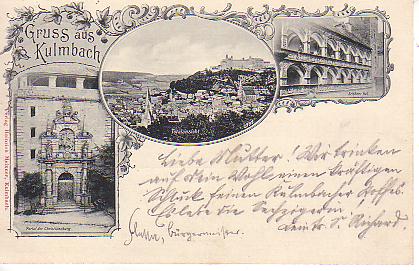 Gruss aus
Kulmbach
Totalansicht
Schöner Hof.
Portal der Christiansburg
Verlag Heinrich Kulmbach.
Liebe Mutter! Wir trinken
auf Dein Wohl einen kräftigen
Schluck feinen Kulmbacher Hofbr.
Es lebe die
Dein tr. S. Richard.
Bürgermeister.